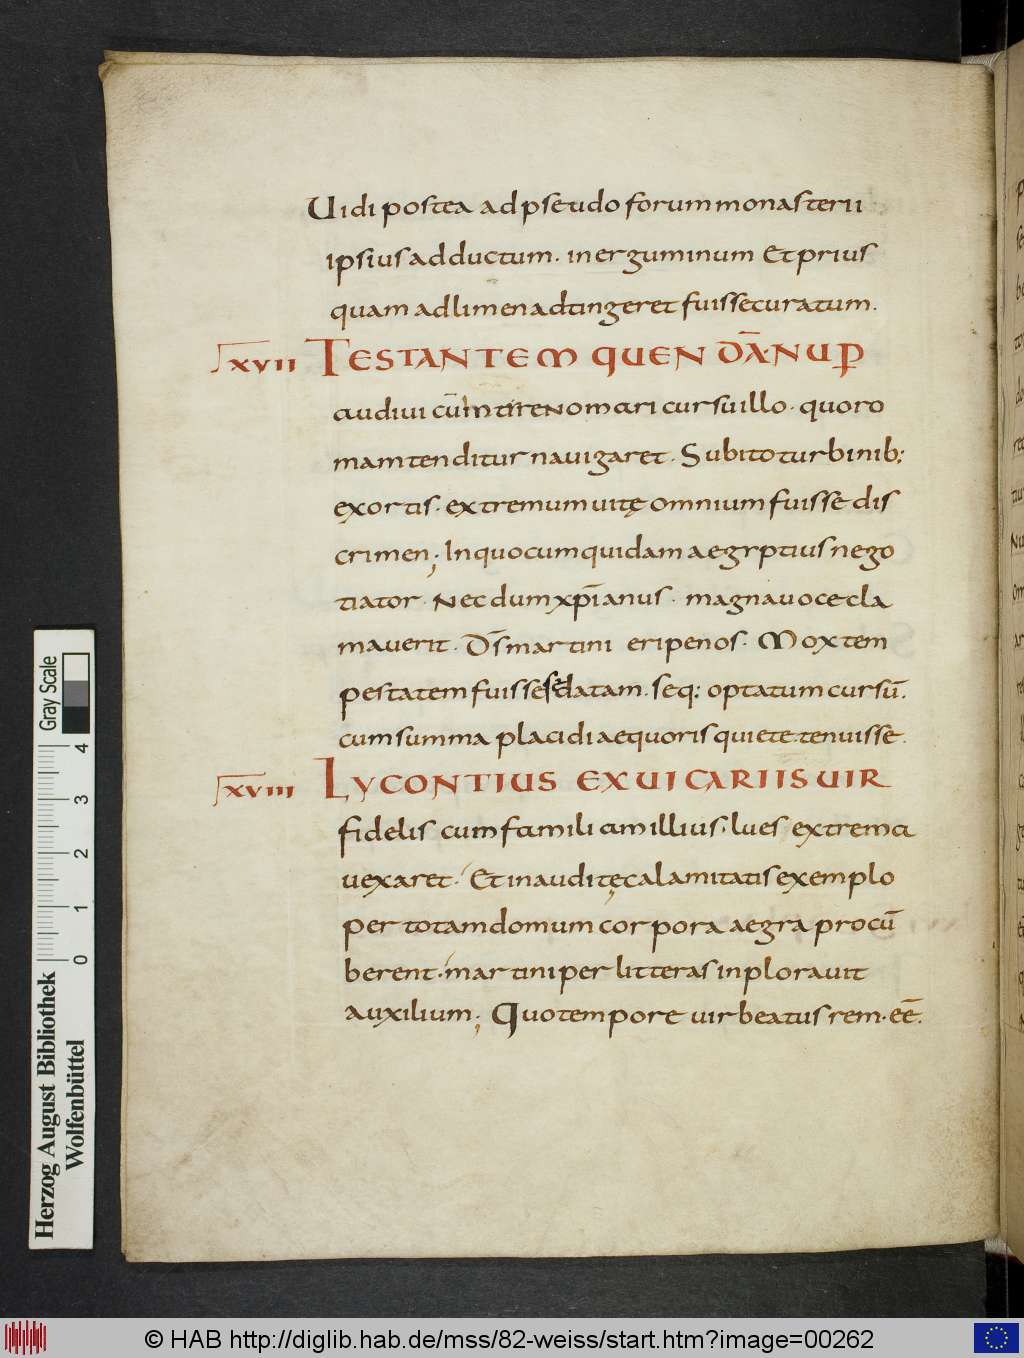 Uidi postea ad pseudo forum monasterii
ipsius adductum. inerguminum Et prius
quam ad limen adtingeret fuisse curatum.
XVII TESTANTEM QUENDĀ NUP
audiui cum tirreno mari cursu illo. quo ro
mam tenditur nauigaret. Subito turbinib;
exortis. extremum uitę omnium fuisse dis
crimen; In quo cum quidam aegrptius nego
tiator. Nec dum xp̄ianus. magna uoce cla
mauerit. D̄s martini eripe nos. Mox tem
pestatem fuisse sedatam. seq: optatum cursū.
cum summa placidi aequoris quiete tenuisse.
XVIII LYCONTIUS EX UICARIIS UIR
fidelis cum familiam illius. lues extrema
uexaret. Et inauditę calamitatis exemplo
per totam domum corpora aegra procū
berent. martini per litteras inplorauit
auxilium; Quo tempore uir beatus rem. eē.
Herzog August Bibliothek
Wolfenbüttel
0 1 2 3 4
Gray Scale
© HAB http://diglib.hab.de/mss/82-weiss/start.htm?image=00262